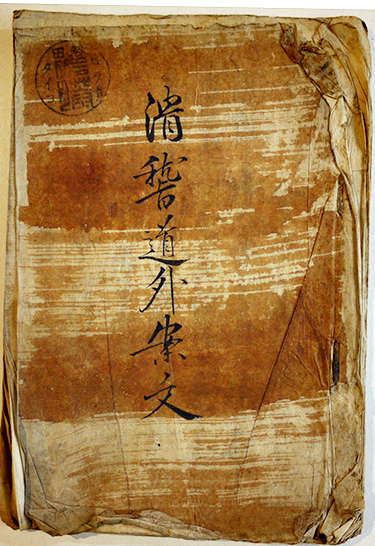 滑稽道外案文